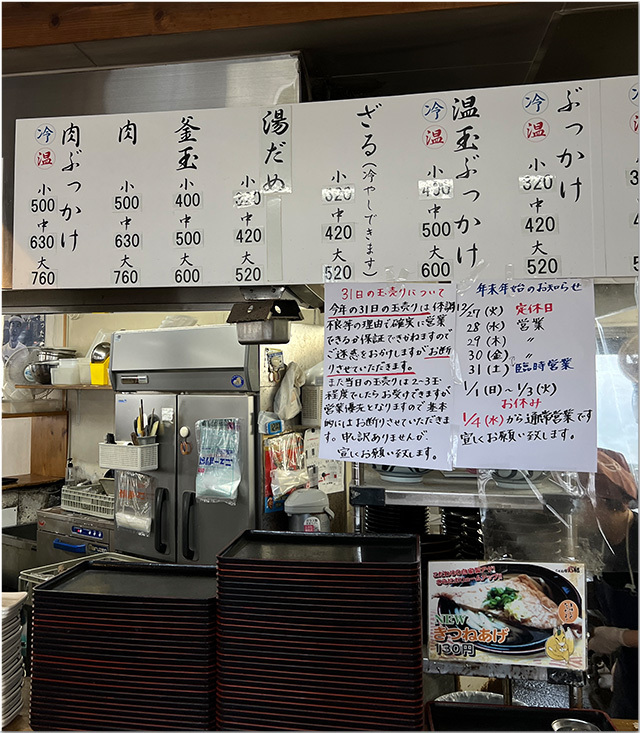 ぶっかけ
冷
温
小
320
中
420
大
520
温玉ぶっかけ
冷
温
小
400
中
500
大
600
ざる(冷やしできます)
小
320
中
420
大
520
湯だめ
小
320
中
420
大
520
釜玉
小
400
中
500
大
600
肉
小
500
中
630
大
760
肉ぶっかけ
冷
温
小
500
中
630
大
760
31日の玉売りについて
今年の31日の玉売りは体調
不良等の理由で確実に営業
できるか保証できかねますので
ご迷惑をおかけしますがお断
りさせていただきます。
また当日の玉売りは2~3玉
程度でしたらお受けできますが
営業優先となりますので基本
的にはお断りさせていただきま
す。申し訳ありませんが、
宜しくお願い致します。
年末年始のお知らせ
12/27(火) 定休日
28(水) 営業
29(木) 〃
30(金) 〃
31(土) 臨時営業
1/1(日)~1/3(火)
お休み
1/4(水)から通常営業です
宜しくお願い致します。
NEW
きつねあげ
130円